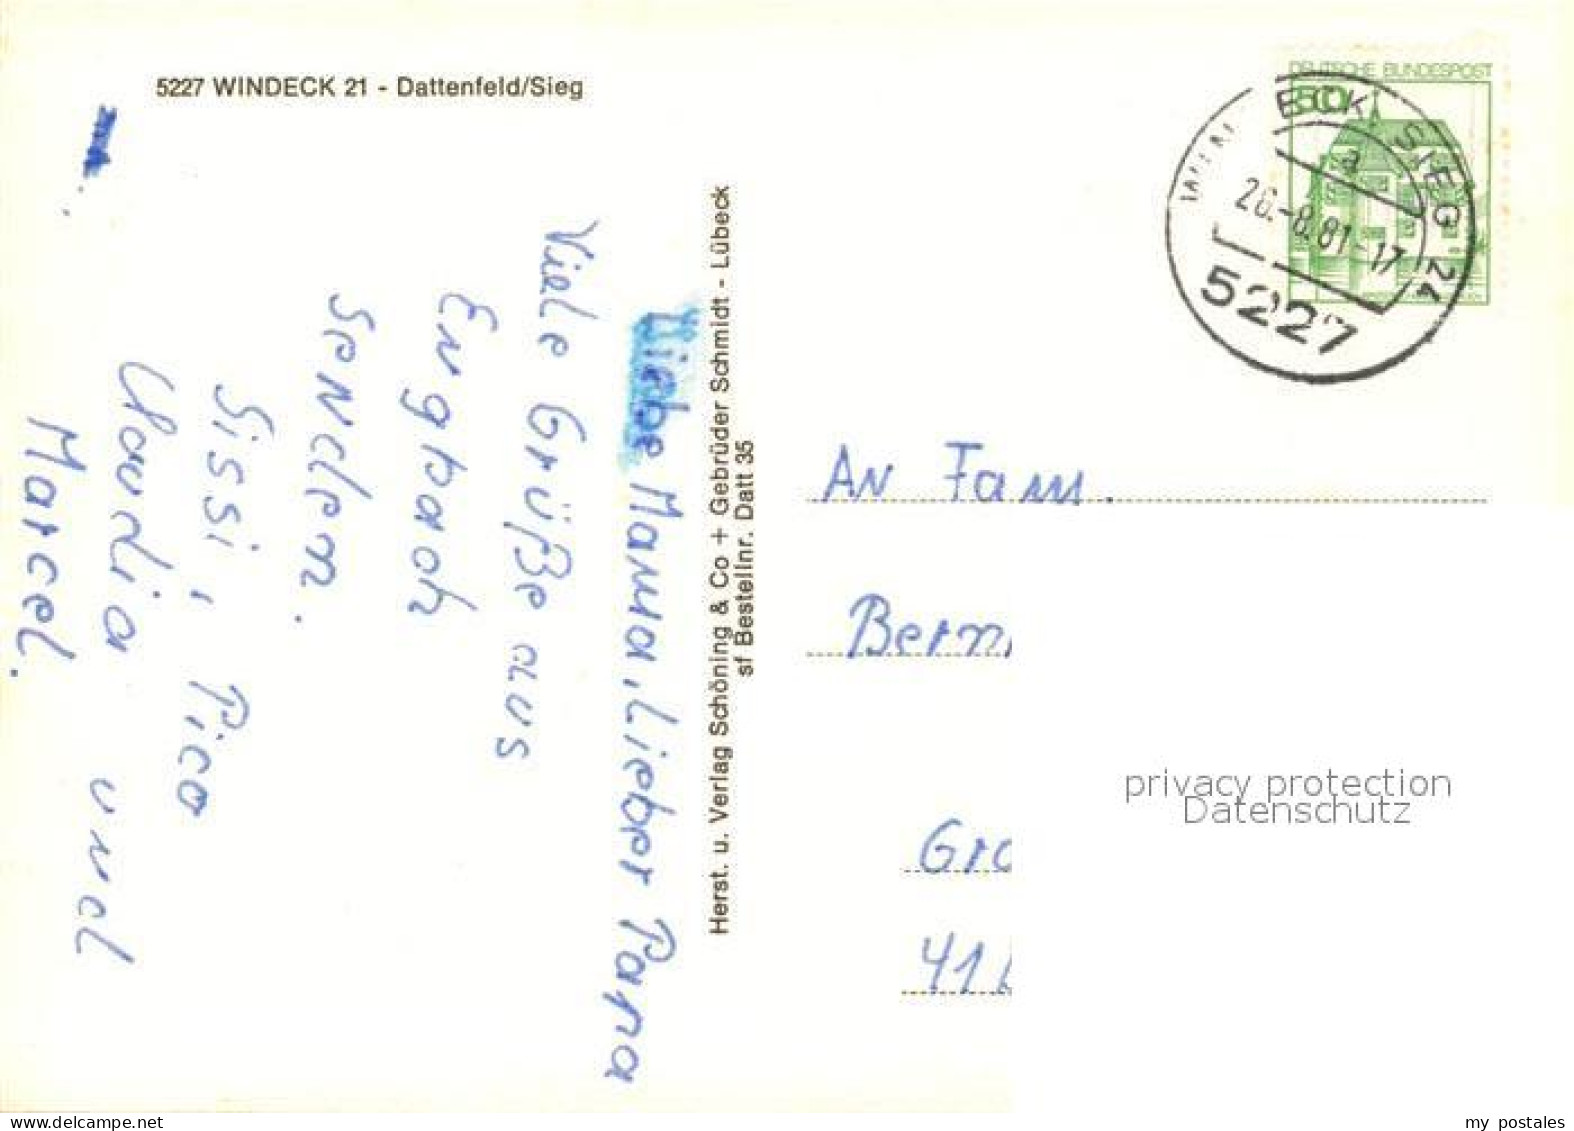 5227 WINDECK 21 - Dattenfeld/Sieg
Liebe Mama, Lieber Papa
Viele Grüße aus
Engbach
Senden.
Sissi, Pico
Claudia und
Marcel.
Herst. u. Verlag Schöning & Co + Gebrüder Schmidt - Lübeck
sf Bestellnr. Datt 35
DEUTSCHE BUNDESPOST
50
WINDECK, SIEG 21
a
26.-8.81-17
5227
An Fam.
Bern
Gro
41
privacy protection
Datenschutz
www.delcampe.net
my postales